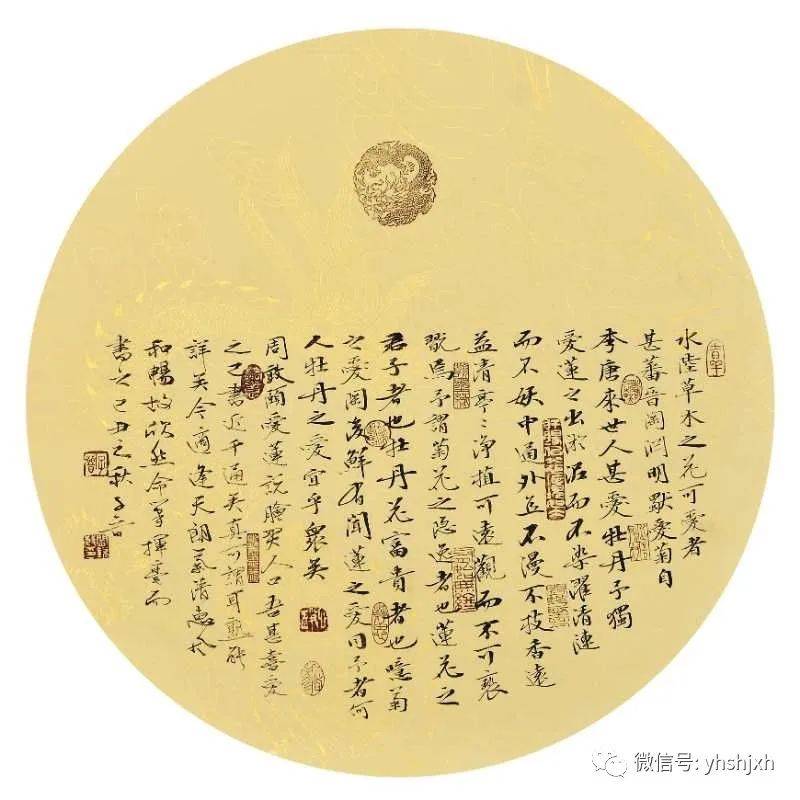 水陸草木之花可愛者
甚蕃晉陶渊明獸愛菊自
李唐來世人甚愛牡丹予獨
愛蓮之出於泥而不染濯清漣
而不妖中通外直不漫不枝香遠
益清亭〻净植可遠觀而不可褻
翫焉予謂菊花之隐逸者也蓮花之
君子者也牡丹花富貴者也噫菊
之愛陶後鮮有聞蓮之愛同予者何
人牡丹之愛宜乎衆矣
周敦頤愛蓮説膾炙人口吾甚喜愛
之已書近千通矣真可謂耳熟能
詳矣今適逢天朗氣清惠風
和暢故欣然命筆揮毫而
書之己丑之秋
微信号: yhshjxh